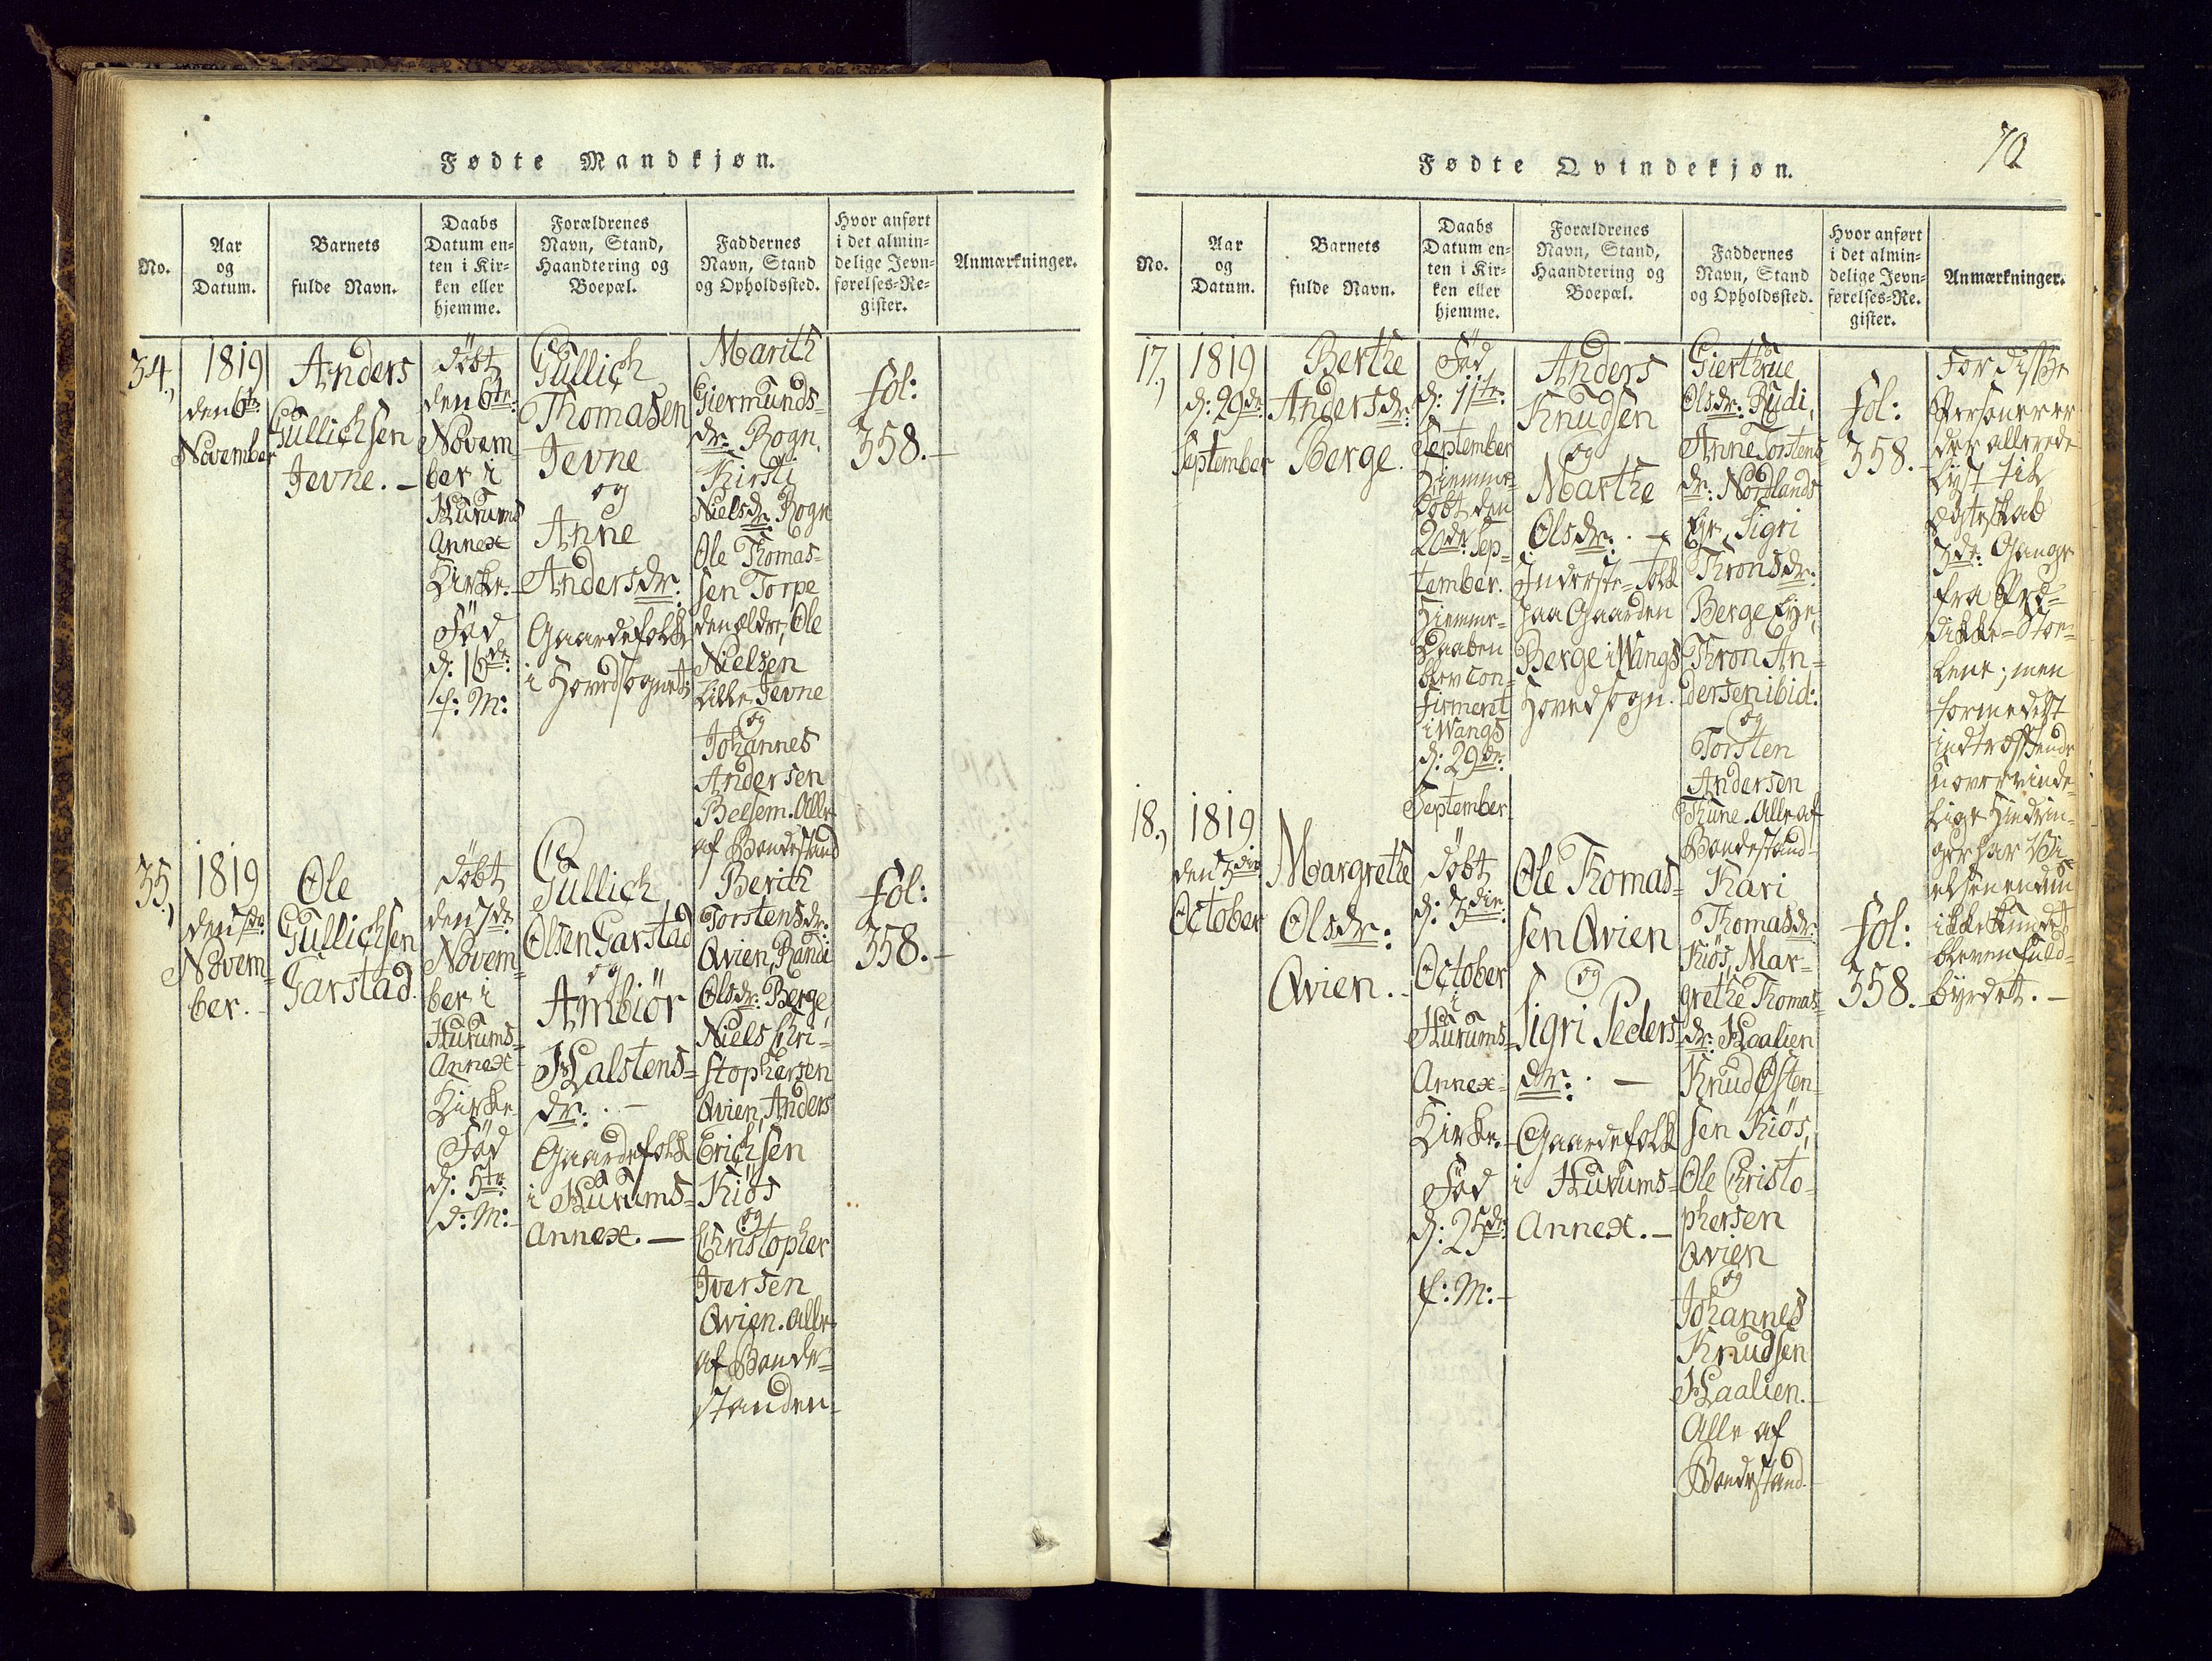 Fødte Mandkjøn.
No.
Aar
og
Datum.
Barnets
fulde Navn.
Daabs
Datum en-
ten i Kir-
ken eller
hjemme.
Forældrenes
Navn, Stand,
Haandtering og
Boepæl.
Faddernes
Navn, Stand
og Opholdssted.
Hvor anført
i det almin-
delige Jevn-
førelses-Re-
gister.
Anmærkninger.
34.,
1819
den 6te
November
Anders
Gullichsen
Jevne. -
döbt
den 6te:
Novem
ber i
Hurums
Annex
Kirke. -
Föd
d: 16de:
f: M:
Gullich
Thomasen
Jevne
og
Anne
Andersdr:
Gaardefolk
i Hovedsognet:
Marith
Giermunds-
dr: Rogn,
Kirsti
Nielsdr: Rogn
Ole Thomas-
sen Torpe
den ældre, Ole
Nielsen
Lille Jevne
og
Johannes
Andersen
Belsem. Alle
af Bondestand
fol:
358. -
35.,
1819
den 7de:
Novem-
ber. -
Ole
Gullichsen
Garstad.
döbt
den 7de:
Novem-
ber i
Hurums-
Annex
Kirke
Föd
d: 5te:
d: M: -
Gullich
Olsen Garstad
og
Ambiör
Halstens-
dr: . -
Gaardefolk
i Hurums-
Annex. -
Berith
Torstensdr:
Qvien, Randi
Olsdr: Berge
Niels Chri-
stophersen
Qvien, Anders
Erichsen
Kiös
og
Christopher
Iversen
Qvien. Alle
af Bonde-
standen -
fol:
358. -
70
Fødte Qvindekjøn.
No.
Aar
og
Datum.
Barnets
fulde Navn.
Daabs
Datum en-
ten i Kir-
ken eller
hjemme.
Forældrenes
Navn, Stand,
Haandtering og
Boepæl.
Faddernes
Navn, Stand
og Opholdssted.
Hvor anført
i det almin-
delige Jevn-
førelses-Re-
gister.
Anmærkninger.
17.,
1819
d: 29de:
September
Berthe
Andersdr:
Berge.
Föd
d: 11te:
September
Hjemme-
döbt den
20de Sep-
tember.
Hjemme-
Daaben
blev con-
firmert
i Wangs
d: 29de:
September
Anders
Knudsen
og
Marthe
Olsdr: . -
Inderste-Folk
paa Gaarden
Berge i Wangs
Hovedsogn.
Gierthrue
Olsdr: Rudi,
Anne Torstens
dr: Nordlands
Eje, Sigri
Thronsdr:
Berge Eje,
Thron An-
dersen ibid:
og
Torsten
Andersen
Thune. Alle af
Bondestand -
fol:
358. -
For disse
Personer er
der allerede
lyst til
Ægteskab
3de: Gange
fra Præ-
dikke-Sto-
lene; men
formedelst
indtræffende
uovervinde-
lige Hindrin-
ger har Vi-
elsen endnu
ikke kundet
bleven fuld-
byrdet. -
18.,
1819
den 3die
October
Margrethe
Olsdr:
Qvien. -
döbt
d: 3die:
October
i
Hurums-
Annex-
Kirke. -
Föd
d: 25de:
f: M: -
Ole Thomas-
sen Qvien
og
Sigri Peders-
dr: . -
Gaardefolk
i Hurums-
Annex. -
Kari
Thomasdr:
Kiös, Mar-
grethe Thomas-
dr: Haalien
Knud Østen-
sen Kiös,
Ole Christo-
phersen
Qvien
og
Johannes
Knudsen
Haalien.
Alle af
Bondestand. -
fol:
358. -